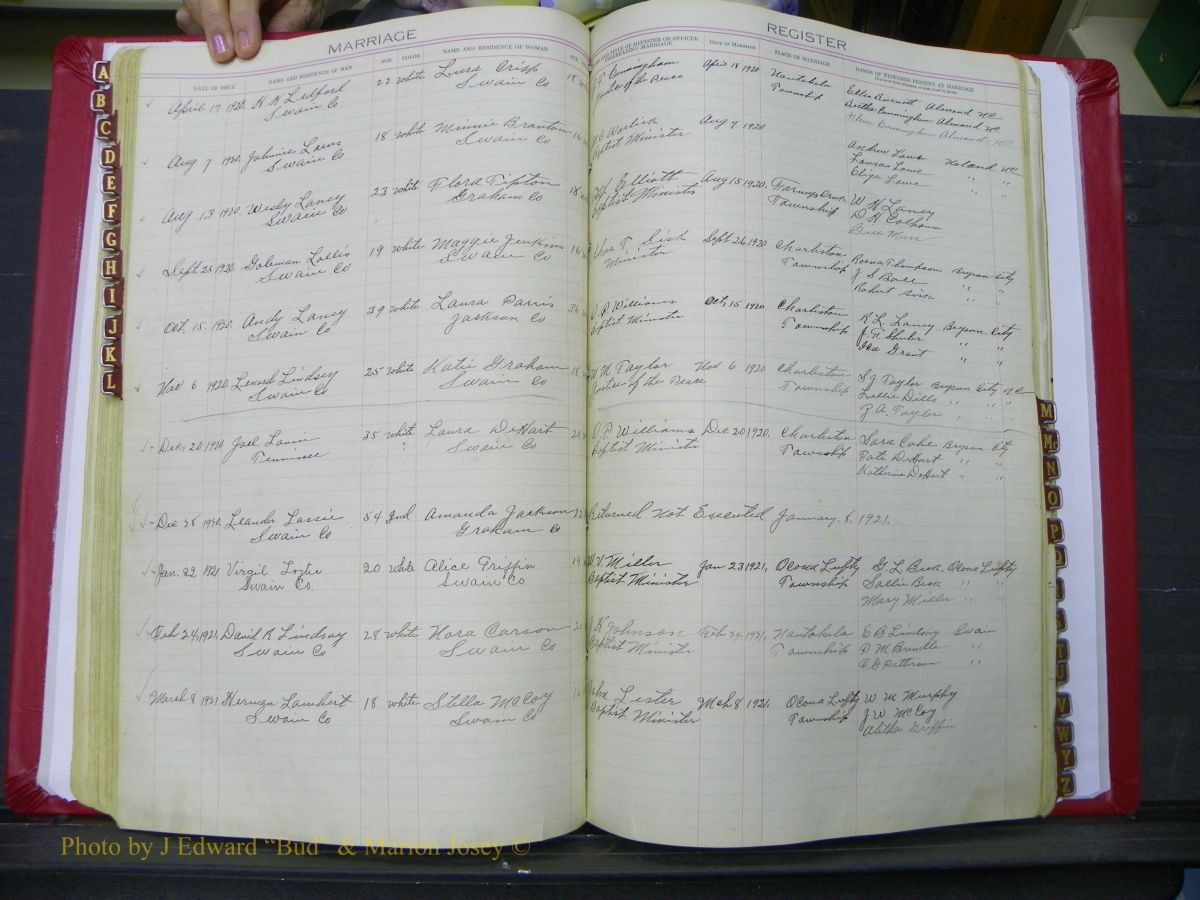 MARRIAGE
REGISTER
DATE OF ISSUE NAME AND RESIDENCE OF MAN AGE COLOR NAME AND RESIDENCE OF WOMAN
OF MINISTER OR OFFICER CELEBRATING MARRIAGE DATE OF MARRIAGE PLACE OF MARRIAGE NAMES OF WITNESSES PRESENT AT MARRIAGE
April 17 1920 Ledford 22 white Laura Crisp 18 Cunningham April 18 1920 Nantahala Ellis Burnett Almond NC
Swain Co Swain Co Justice of the Peace Township Bertha Cunningham Almond NC
Cunningham Almond NC
Aug 7 1920, Johnnie Lowe 18 white Minnie Branton 16 Baptist Minister Aug 7 1920 Andrew Lowe Noland NC
Swain Co Swain Co Laura Lowe " "
Eliza Lowe " "
Aug 13 1920, Wesby Laney 23 white Flora Tipton 18 Elliott Aug 15 1920. Township W H Laney
Swain Co Graham Co Baptist Minister D K Calhoun
Sept. 25 1920, Goleman 19 white Maggie Jenkins 16 T. Sisk Sept 26 1920 Charleston Thompson Bryson City
Swain Co Swain Co Minister Township J S " "
Robert Sisk " "
Oct. 15. 1920. Andy Laney 39 white Laura Parris 36 P Williams Oct, 15 1920 Charleston R L Laney Bryson City
Swain Co Jackson Co Baptist Minister Township J. H. Shuler " "
Grant " "
Nov 6 1920, Lenord Lindsey 25 white Katie Graham 18 W M Taylor Nov 6 1920 Charleston S J Taylor Bryson City NC
Swain Co Swain Co Justice of the Peace Township Lillie Dills " " "
Taylor " "
Dec 20 1920 Joel 35 white Laura DeHart 20 O. P. Williams Dec 20 1920, Charleston Sara Cabe Bryson City
Tennissee Swain Co Baptist Minister Township Tate DeHart " "
Katherine DeHart " "
Dec 25 1920, Leander Lossie 54 Ind Amanda Jackson Returned Not Executed January. 6. 1921.
Swain Co Graham Co
Jan. 22 1921 Virgil 20 white Alice Griffin 19 W. V. Miller Jan 23 1921, Ocona Lufty G. L. Beck, Ocona Lufty
Swain Co. Swain Co Baptist Minister Township Sallie Beck " "
Mary Miller " "
Feb 24, 1921, David R Lindsay 28 white Nora Carson 21 Johnson Feb 24, 1921, Nantahala E B Lindsay Swain
Swain Co Swain Co Baptist Minister Township D M Brendle "
Patterson "
March 8 1921 Herman Lambert 18 white Stella McCoy John Lester Mch 8 1921, Ocona Lufty W M Murphy
Swain Co Swain Co Baptist Minister Township J W McCoy
Alitha Griffin
A
B
C
D
E
F
G
H
I
J
K
L
M
Mc
N
O
P
V
W
Y
Z
Photo by J Edward "Bud" & Marion Josey ©